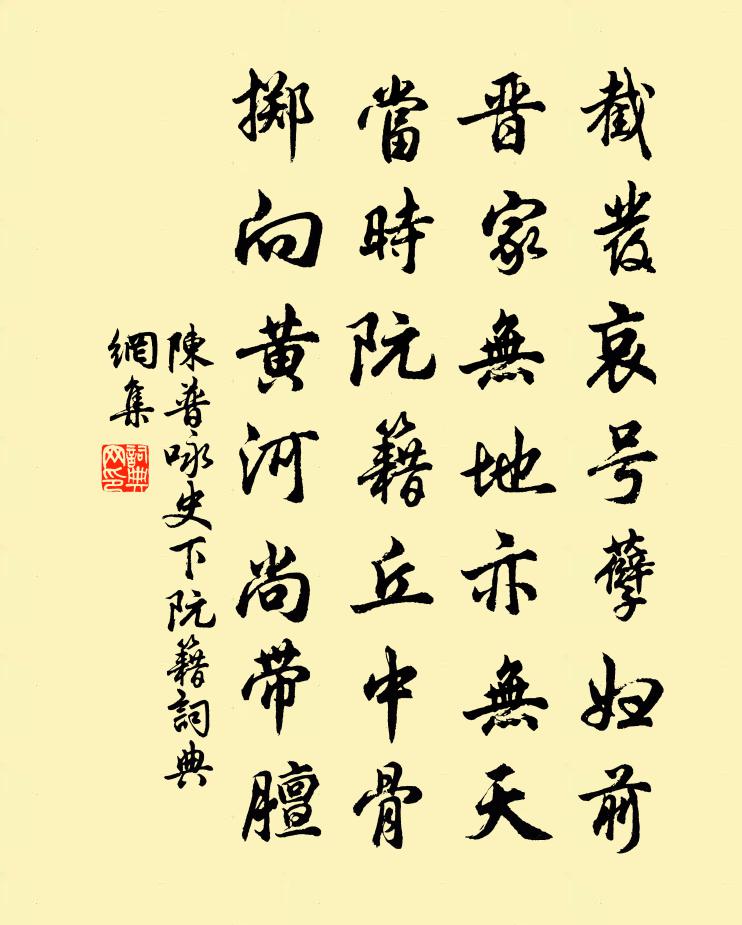 截發哀号孽妇前
晋家無地亦無天
當時阮籍丘中骨
掷向黄河尚带膻
陳普咏史下阮籍詞典
網集
詞典
网印